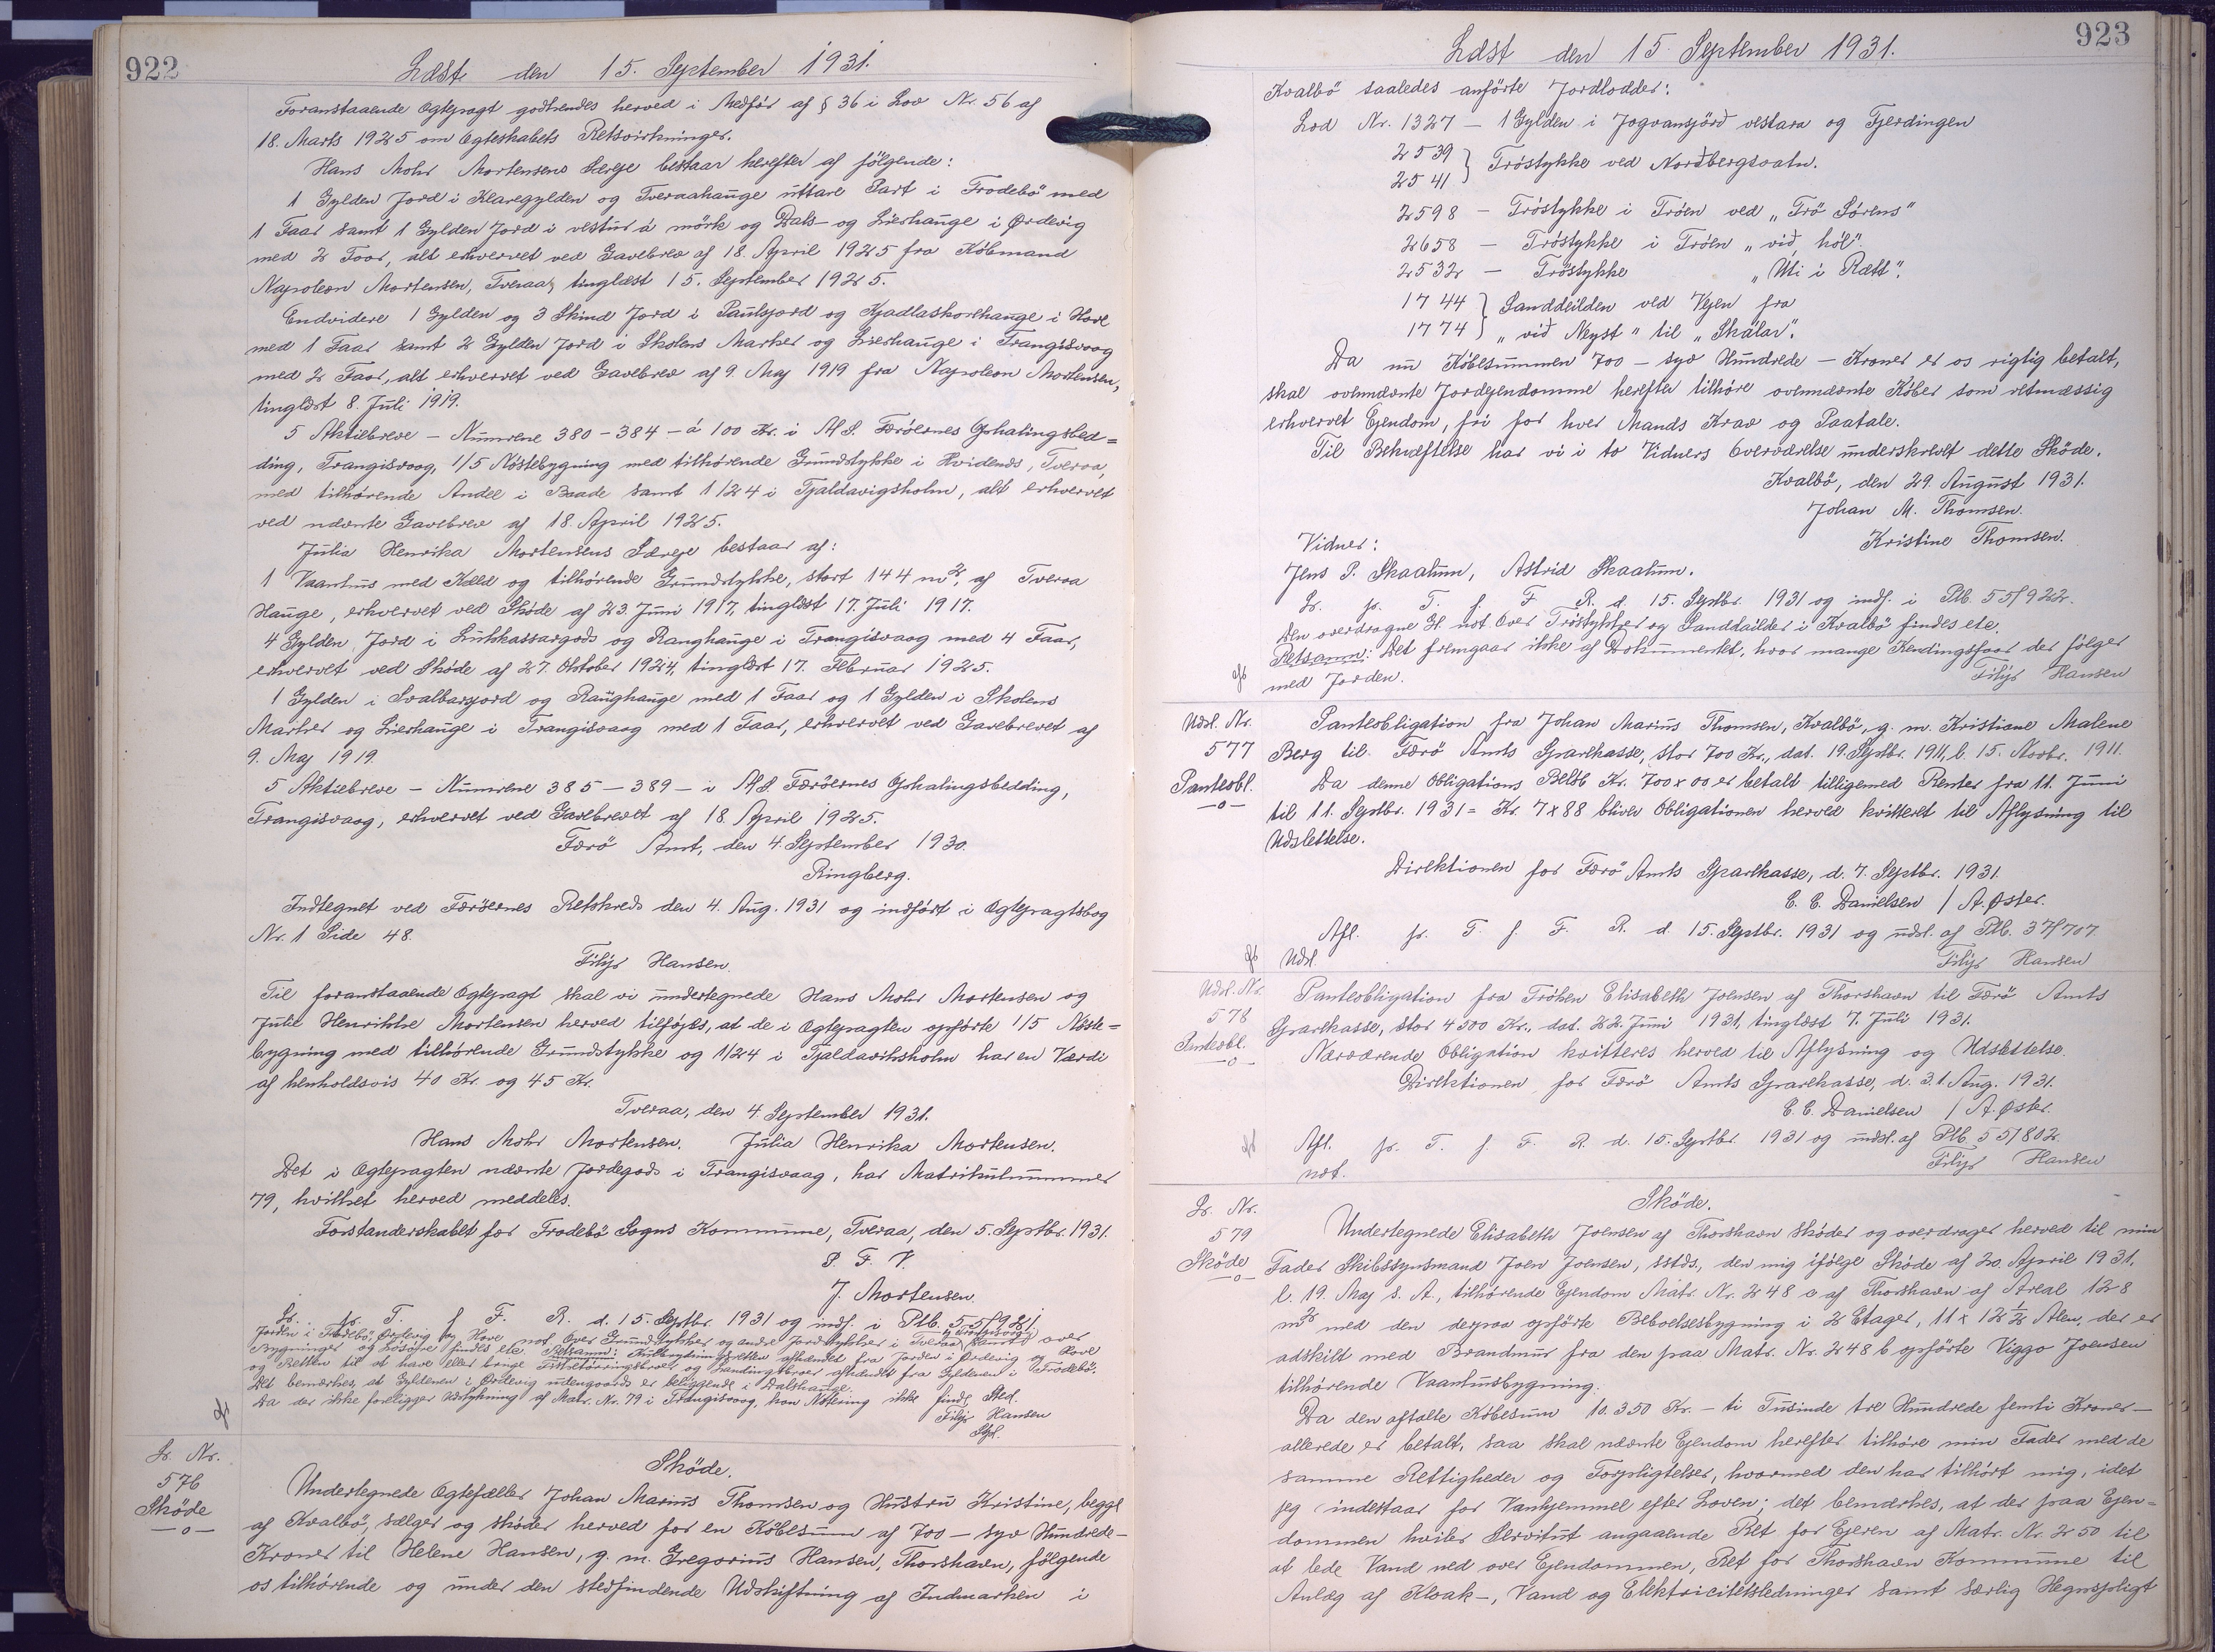 922
Læst den 15. September 1931.
Foranstaaende Ægtepagt godkendes herved i Medfør af § 36 i Lov Nr. 56 af
18. Marts 1925 om Ægteskabets Retsvirkninger.
Hans Mohr Mortensens Særeje bestaar herefter af følgende:
1 Gylden Jord i Klaregylden og Tveraahauge uttare Part i Frodebö med
1 Faar samt 1 Gylden Jord i vestur á mörk og Dals- og Lierhauge i Ørdevig
med 2 Faar, alt erhvervet ved Gavebrev af 18. April 1925 fra Købmand
Napoleon Mortensen, Tveraa, tinglæst 15. September 1925.
Endvidere 1 Gylden og 3 Skind Jord i Paulsjord og Kjadlaskorhauge i Hove
med 1 Faar samt 2 Gylden Jord i Skolens Marker og Lierhauge i Trangisvaag
med 2 Faar, alt erhvervet ved Gavebrev af 9. Maj 1919 fra Napoleon Mortensen,
tinglæst 8. Juli 1919.
5 Aktiebreve - Numrene 380-384 - á 100 Kr. i A/S. Færöernes Ophalingsbed=
ding, Trangisvaag, 1/5 Nöstebygning med tilhørende Grundstykke i Hvidenæs, Tveraa,
med tilhørende Andel i Baade samt 1/24 i Tjaldavigsholm, alt erhvervet
ved nævnte Gavebrev af 18. April 1925.
Julia Henrika Mortensens Særeje bestaar af:
1 Vaanhus med Kæld og tilhørende Grundstykke, stort 144 m², af Tveraa
Hauge, erhvervet ved Skøde af 23. Juni 1917, tinglæst 17. Juli 1917.
4 Gylden Jord i Lukkassargods og Ranghauge i Trangisvaag med 4 Faar,
erhvervet ved Skøde af 27. Oktober 1924, tinglæst 17. Februar 1925.
1 Gylden i Svalbarsjord og Raughauge med 1 Faar og 1 Gylden i Skolens
Marker og Lierhauge i Trangisvaag med 1 Faar, erhvervet ved Gavebrevet af
9. Maj 1919.
5 Aktiebreve - Numrene 385-389 - i A/S. Færöernes Ophalingsbedding,
Trangisvaag, erhvervet ved Gavebrevet af 18. April 1925.
Færö Amt, den 4. September 1930.
Ringberg.
Indtegnet ved Færöernes Retskreds den 4. Aug. 1931 og indført i Ægtepagtsbog
Nr. 1 Side 48.
Filip Hansen.
Til foranstaaende Ægtepagt skal vi undertegnede Hans Mohr Mortensen og
Julie Henrikke Mortensen herved tilföjes, at de i Ægtepagten opførte 1/5 Nöste=
bygning med tilhørende Grundstykke og 1/24 i Tjaldaviksholm har en Værdi
af henholdsvis 40 Kr. og 45 Kr.
Tveraa, den 4. September 1931.
Hans Mohr Mortensen. Julia Henrika Mortensen.
Det i Ægtepagten nævnte Jordegods i Trangisvaag, har Matrikulnummer
79, hvilket herved meddeles.
Forstanderskabet for Frodebö Sogns Kommune, Tveraa, den 5. Septbr. 1931.
P. F. V.
J. Mortensen.
Lr. pr. T. f. F. R. d. 15. Septbr. 1931 og indf. i Ptb. 55/921.
Jorden i Frodebö, Ørdevig og Hove not. Over Grundstykker og andre Jordstykker i Tveraa og Trangisvaag samt over
Bygninger og Løsøre findes ete. Retsanm: Kulbrydningsretten afhændet fra Jorden i Ørdevig og Hove
og Retten til at have eller bruge Fisketørringsbrer og Landingsbroer afhændet fra Gyldenen i Frodebö.
Det bemærkes, at Gyldenen i Ørdevig udengaards er beliggende i Dalshauge.
Da der ikke foreligger Udstykning af Matr. Nr. 79 i Trangisvaag, kan Notering ikke finde Sted.
Filip Hansen
Lr. Nr.
576
Skøde
-o-
Skøde.
Undertegnede Ægtefæller Johan Marius Thomsen og Hustru Kristine, begge
af Kvalbö, sælger og skøder herved for en Købesum af 700 - syv Hundrede -
Kroner til Helene Hansen, g. m. Gregorius Hansen, Thorshavn, følgende
os tilhørende og under den stedfindende Udskiftning af Indmarken i
923
Læst den 15. September 1931.
Kvalbö saaledes anførte Jordlodder:
Lod Nr. 1327 - 1 Gylden i Jogvansjörð vestara og Fjerdingen
2539
2541 } Tröstykke ved Norðbergsvatn.
2598 - Tröstykke i Tröen ved „Trö Sörens"
2658 - Tröstykke i Tröen „við hól".
2532 - Tröstykke „Uti i Rætt".
1744 } Sanddeilden ved Vejen fra
1774 } „við Neyst" til „Skálar".
Da nu Købesummen 700 - syv Hundrede - Kroner er os rigtig betalt,
skal ovennævnte Jordejendomme herefter tilhøre ovennævnte Køber som retmæssig
erhvervet Ejendom, fri for hver Mands Krav og Paatale.
Til Bekræftelse har vi i to Vidners Overværelse underskrevet dette Skøde.
Kvalbö, den 29. August 1931.
Johan M. Thomsen.
Kristine Thomsen.
Vidner:
Jens P. Skaalum, Astrid Skaalum.
Lr. pr. T. f. F. R. d. 15. Septbr. 1931 og indf. i Ptb. 55/922.
Den overdragne Ejd. not. Over Tröstykker og Sanddeilder i Kvalbö findes ete.
Retsanm: Det fremgaar ikke af Dokumentet, hvor mange Kendingsfaar der følger
med Jorden.
Filip Hansen
Udsl. Nr.
577
Panteobl.
-o-
Panteobligation fra Johan Marius Thomsen, Kvalbö, g. m. Kristiane Malene
Berg til Færö Amts Sparekasse, stor 700 Kr., dat. 19. Septbr. 1911, l. 15. Novbr. 1911.
Da denne Obligations Beløb Kr. 700 x 00 er betalt tilligemed Renter fra 11. Juni
til 11. Septbr. 1931 = Kr. 7 x 88 bliver Obligationen herved kvitteret til Aflysning til
Udslettelse.
Direktionen for Færö Amts Sparekasse, d. 7. Septbr. 1931.
C. C. Danielsen / A. Øster.
Afl. pr. T. f. F. R. d. 15. Septbr. 1931 og udsl. af Ptb. 37/707.
Udsl.
Filip Hansen
Udsl. Nr.
578
Panteobl.
-o-
Panteobligation fra Fröken Elisabeth Joensen af Thorshavn til Færö Amts
Sparekasse, stor 4500 Kr., dat. 22. Juni 1931, tinglæst 7. Juli 1931.
Nærværende Obligation kvitteres herved til Aflysning og Udslettelse.
Direktionen for Færö Amts Sparekasse, d. 31. Aug. 1931.
C. C. Danielsen / A. Øster.
Afl. pr. T. f. F. R. d. 15. Septbr. 1931 og udsl. af Ptb. 55/802.
not.
Filip Hansen
Lr. Nr.
579
Skøde
-o-
Skøde.
Undertegnede Elisabeth Joensen af Thorshavn skøder og overdrager herved til min
Fader Skibssynsmand Joen Joensen, sstds., den mig ifølge Skøde af 20. April 1931,
l. 19. Maj s. A., tilhørende Ejendom Matr. Nr. 248 a af Thorshavn af Areal 128
m² med den derpaa opførte Beboelsesbygning i 2 Etager, 11 x 12 ½ Alen, der er
adskilt med Brandmur fra den paa Matr. Nr. 248 b opførte Viggo Joensen
tilhørende Vaanhusbygning.
Da den aftalte Købesum 10.350 Kr. - ti Tusinde tre Hundrede femti Kroner -
allerede er betalt, saa skal nævnte Ejendom herefter tilhøre min Fader med de
samme Rettigheder og Forpligtelser, hvormed den har tilhört mig, idet
jeg indestaar for Vanhjemmel efter Loven; det bemærkes, at der paa Ejen=
dommen hviler Servitut angaaende Ret for Ejeren af Matr. Nr. 250 til
at lede Vand ned over Ejendommen, Ret for Thorshavn Kommune til
Anlæg af Kloak-, Vand og Elektricitetsledninger samt særlig Hegnspligt